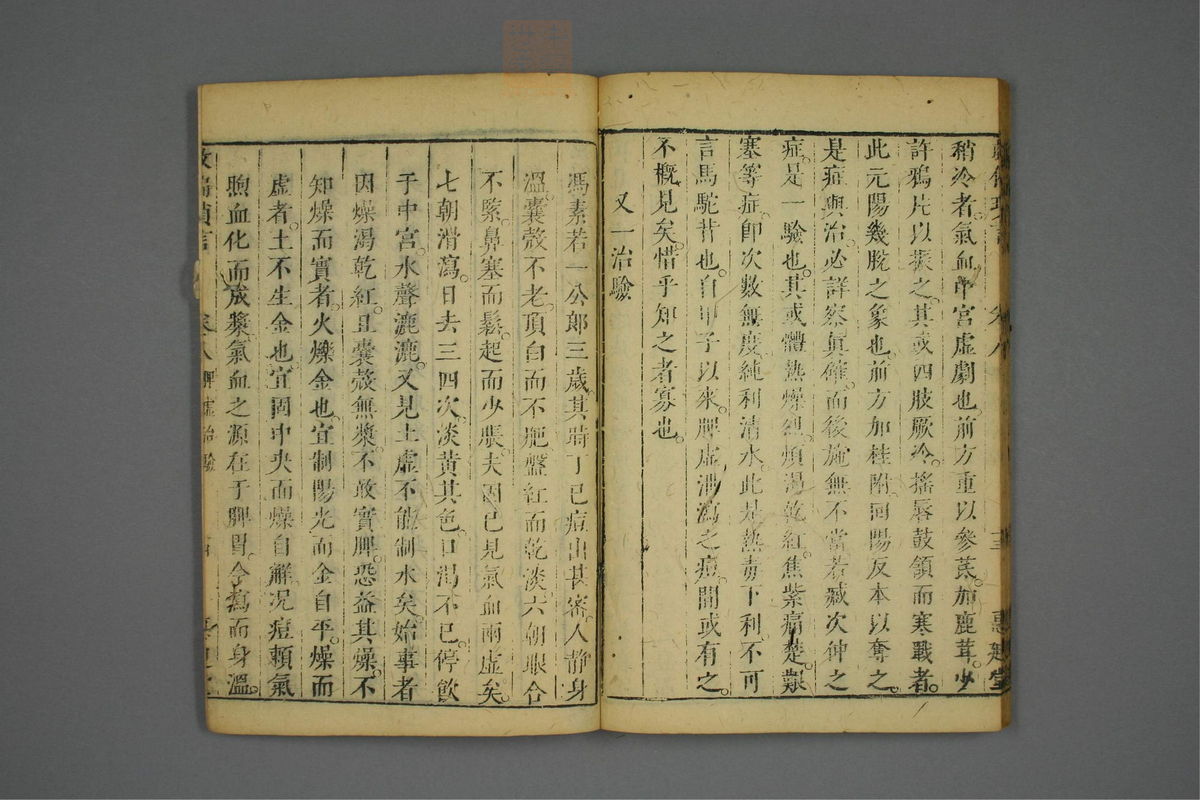 稍冷者。氣血中宮虛劇也。前方重以參茋。加鹿茸。少
許鴉片以振之。其或四肢厥冷。搖唇鼓頷而寒戰者。
此元陽幾脫之象也。前方加桂附。回陽反本以奪之。
是症與治。必詳察眞確。而後施無不當。若臧次仲之
症。是一驗也。其或體熱燥烈。煩渴乾紅。焦紫痛楚。艱
塞等症。卽次數無度。純利清水。此是熱毒下利。不可
言馬駝昔也。自甲子以來。脾虛泄瀉之痘。間或有之。
不概見矣。惜乎知之者寡也。
又一治驗
馮素若一公郎三歲。其時丁巳痘出甚密。人静身
溫。囊殼不老。頂白而不𤴯。盤紅而乾淡。六朝眼合
不緊。鼻塞而鬆。起而少脹。夫固已見氣血兩虛矣。
七朝滑瀉。日去三四次。淡黄其色。口渴不已。停飲
于中宮。水聲漉漉。又見土虛不能制水矣。始事者
因燥渴乾紅。且囊殼無漿。不敢實脾。恐益其燥。不
知燥而實者。火爍金也。宜制陽光而金自平。燥而
虛者。土不生金也。宜固中央而燥自解。况痘賴氣
煦血化而成漿。氣血之源在于脾胃。今瀉而身溫。
卷八脾虛治驗